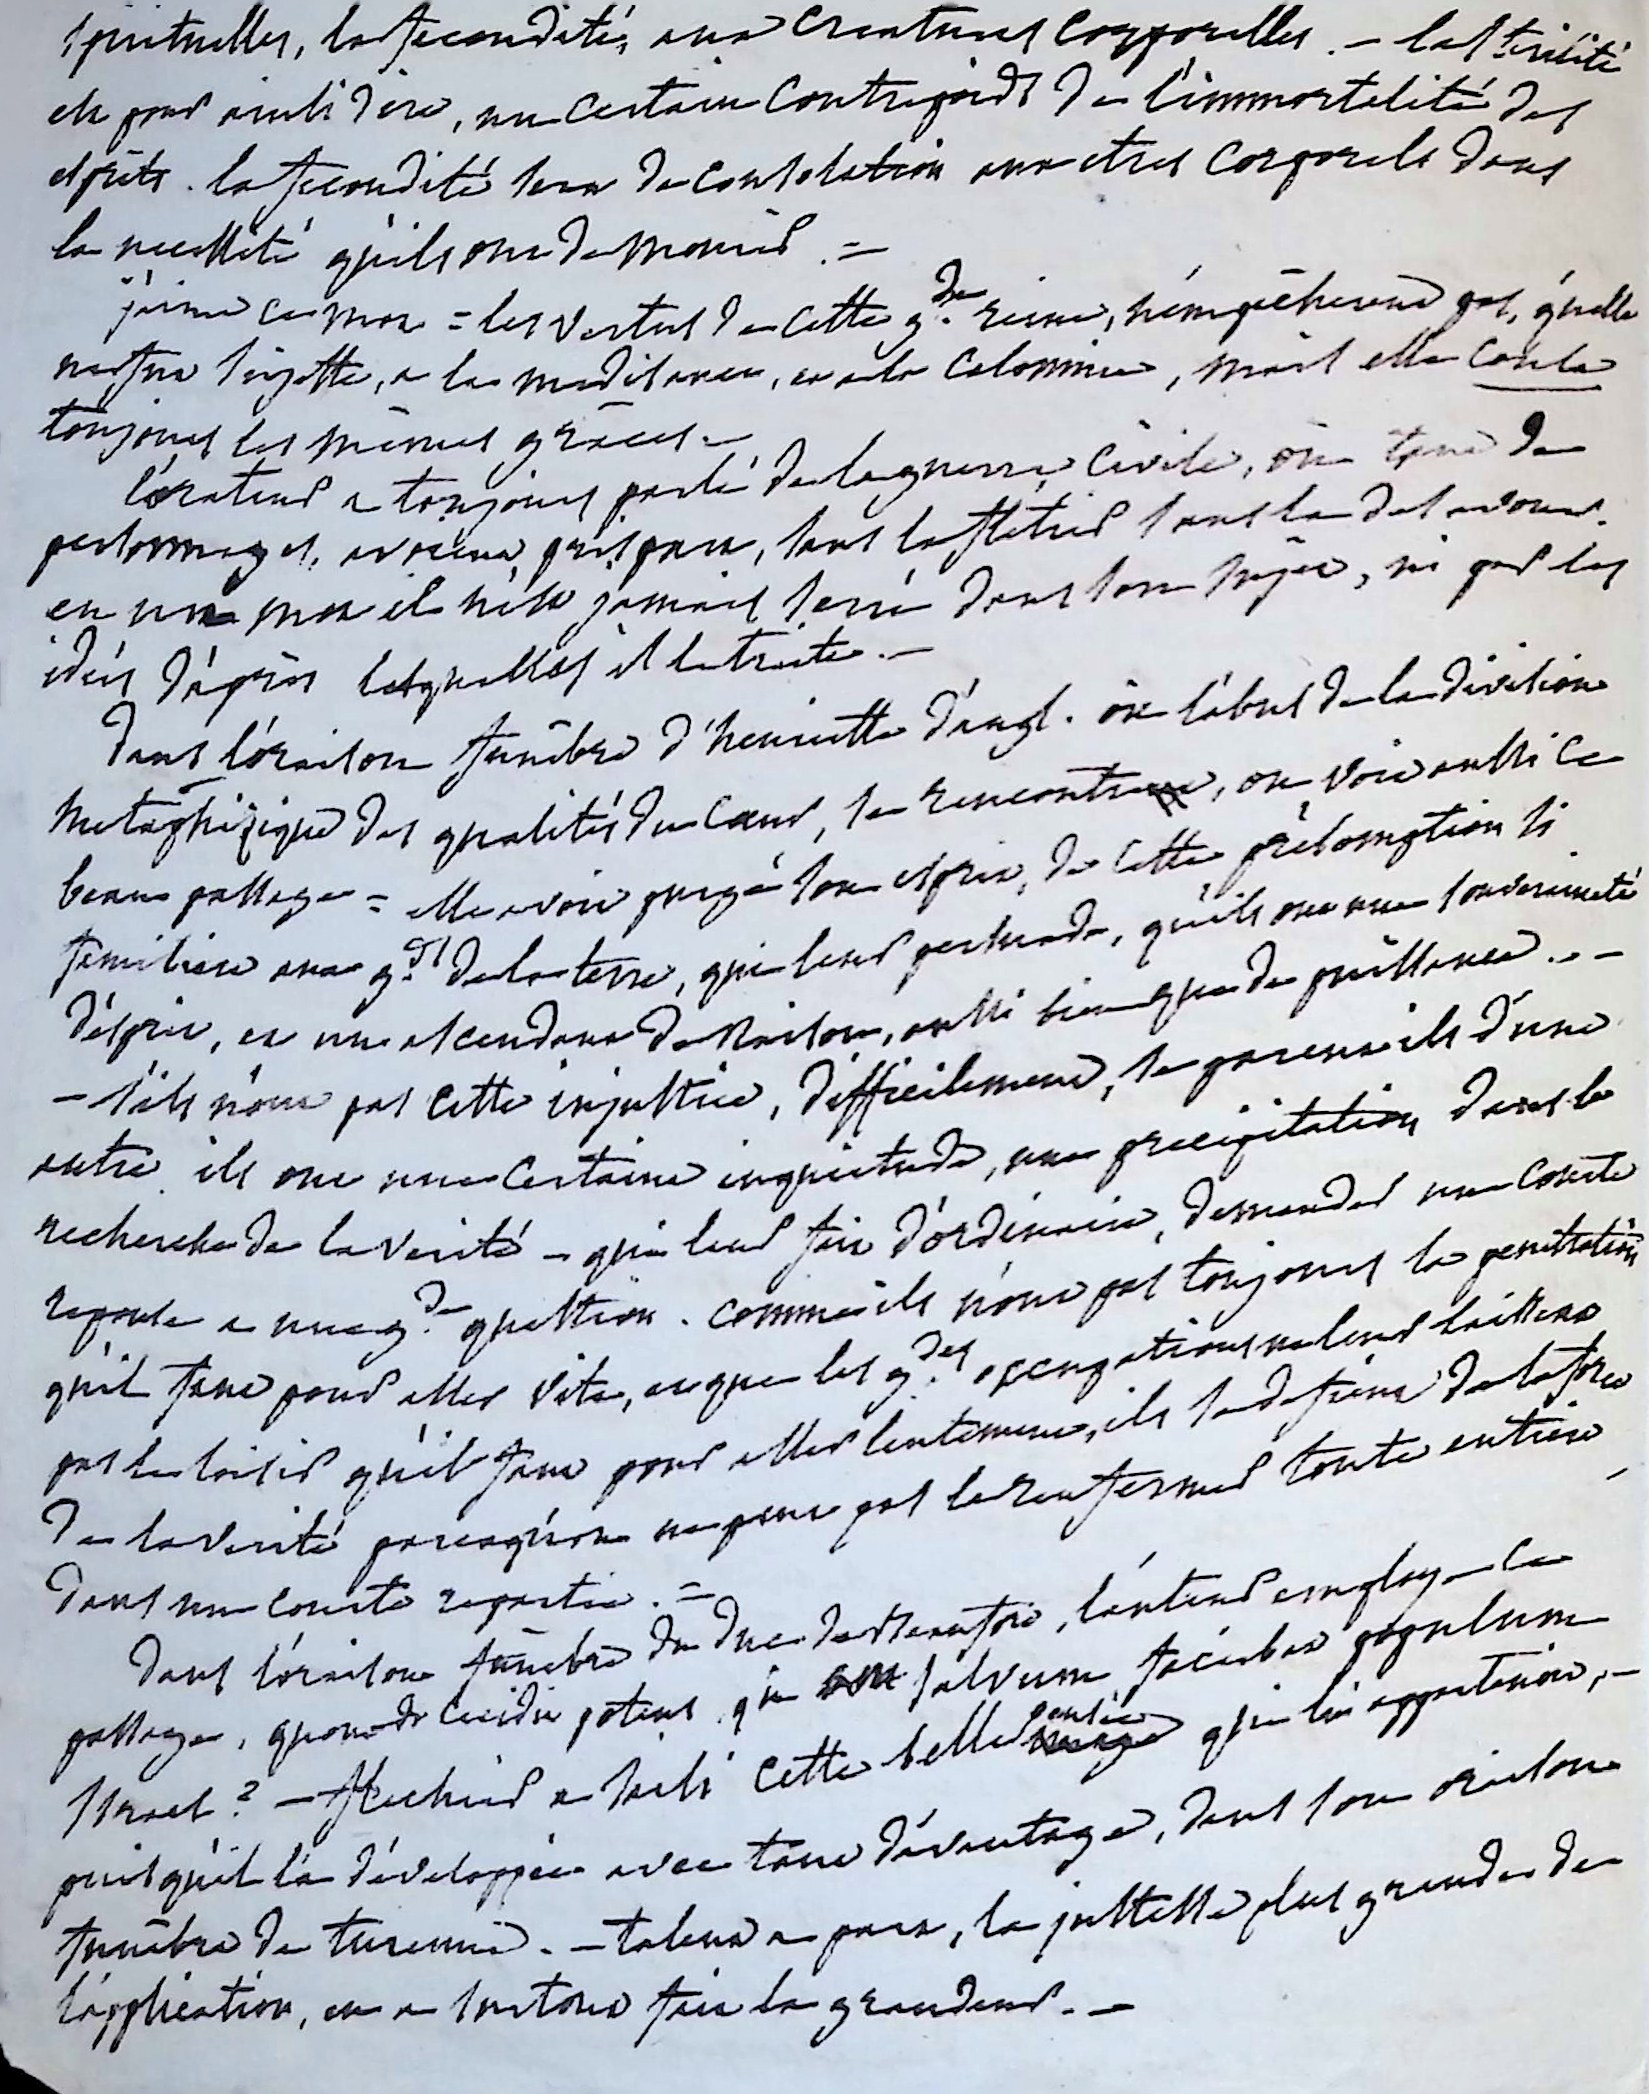 spirituelles, la fecondité, aux creatures corporelles. - la sterilité
est pour ainsi dire, un certain contrepoids de l'immortalité des
esprits. la fecondité sera de consolation aux etres corporels dans
la necessité qu'ils ont de mourir. =
j'aime ce mot = les vertus de cette g.de reine, n'empêcherent pas, qu'elle
ne fut sujette, a la medisance, et a la calomnie, mais elle coula
toujours les mêmes grâces. -
l'orateur a toujours parlé de la guerre civile, où tant de
personnages, avoient pris part, sans la flétrir sans la desavouer.
en un mot il n'est jamais serré dans son sujet, ni par les
idées d'après lesquelles il le traite. -
dans l'oraison funêbre d'henriette d'angl. où l'abus de la division
metaphisique des qualités du coeur, se rencontre, on voit aussi ce
beau passage = elle avoit purgé son esprit, de cette présomption si
familiere aux g.ds de la terre, qui leur persuade, qu'ils ont une souveraineté
d'esprit, et un ascendant de raison, aussi bien que de puissance. . -
- s'ils n'ont pas cette injustice, difficilement, se parent ils d'une
autre. ils ont une certaine inquietude, une precipitation dans la
recherche de la verité - qui leur fait d'ordinaire, demander une courte
reponse a une g.de question. comme ils n'ont pas toujours la penetration
qu'il faut pour aller vite, et que les g.des occupations ne leur laissent
pas le loisir qu'il faut pour aller lentement, ils se defient de la force
de la verité parce qu'on ne peut pas la renfermer toute entiere
dans une courte repartie. =
dans l'oraison funêbre du duc de Beaufort, l'auteur employe ce
passage, quomodo cecidit potens qui salvum faciebat populum
Israel? - flechier a saisi cette belle pensée qui lui appartenoit, -
puisqu'il l'a développée avec tant d'avantage, dans son oraison
funêbre de turenne. - talent a part, la justesse plus grande de
l'application, en a surtout fait la grandeur. -